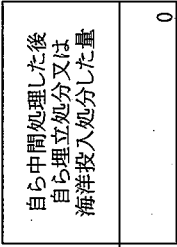 自ら中間処理した後
自ら埋立処分又は
海洋投入処分した量
0